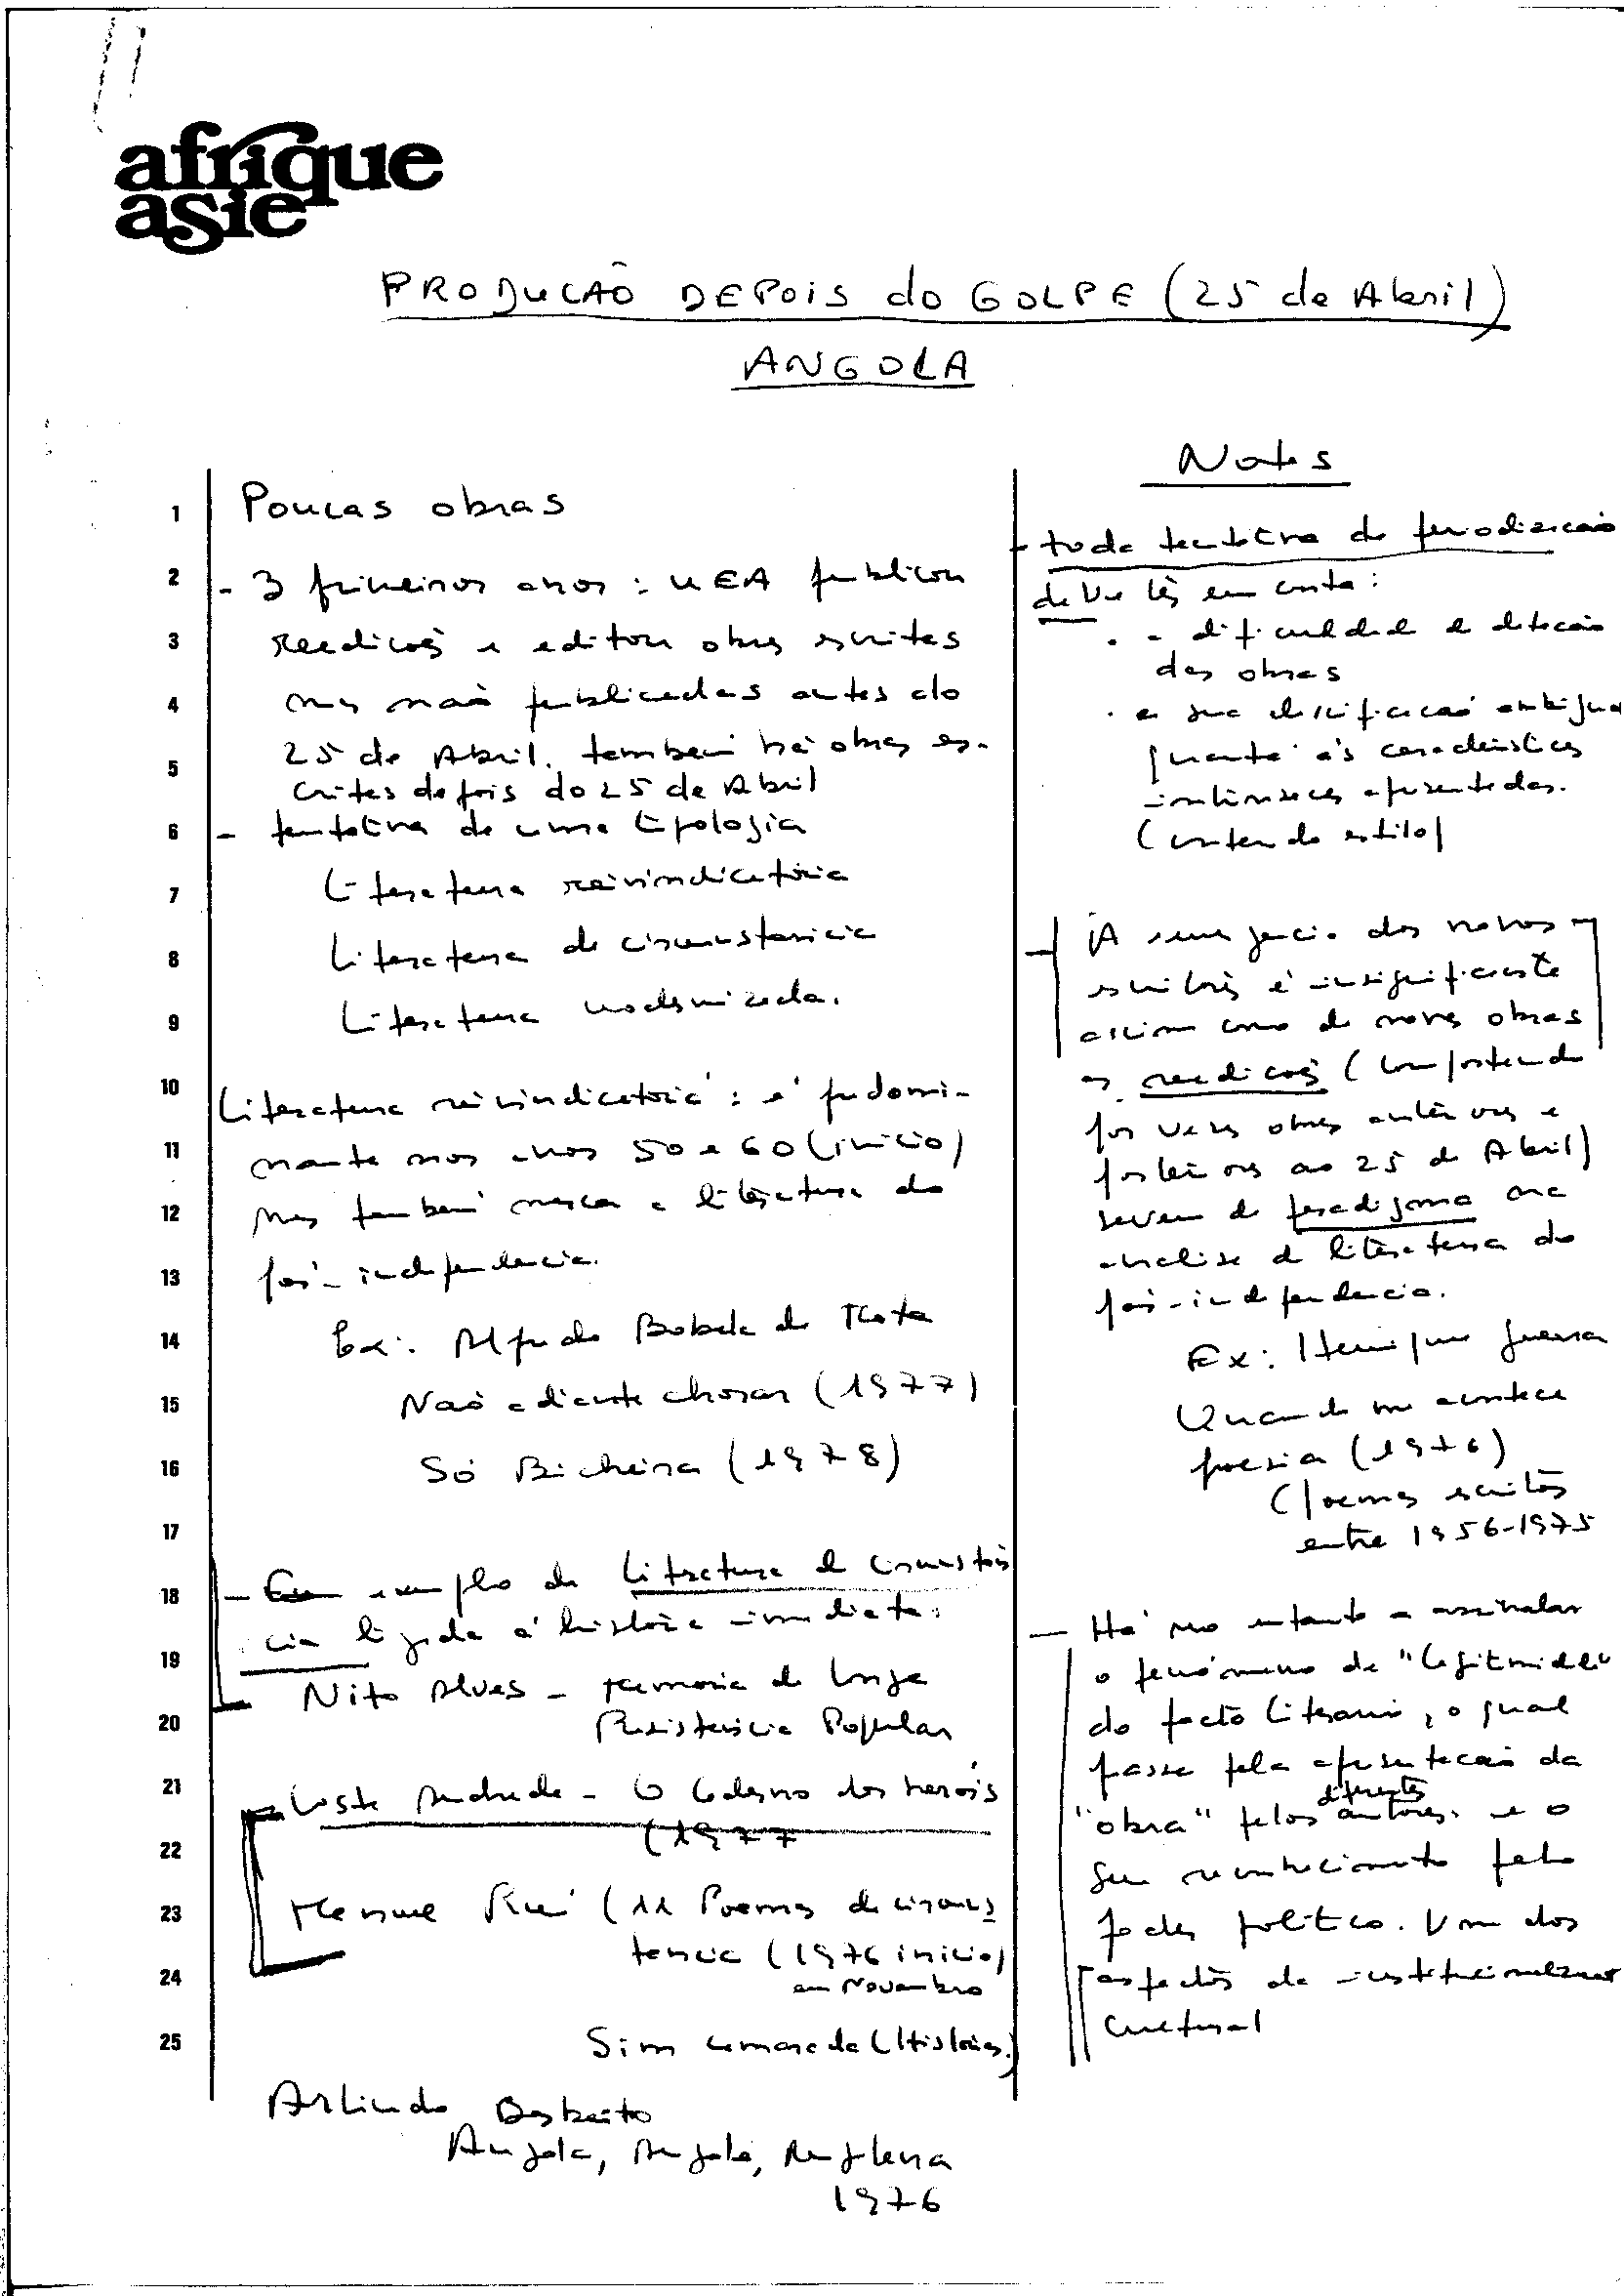 afrique
asie
PRODUCÃO DEPOIS do GOLPE (25 de Abril)
ANGOLA
1 Poucas obras
2 - 3 primeiros anos : UEA publicou
3 reedições e editou obras escritas
4 mas não publicadas antes do
5 25 de Abril. também há obras es-
critas depois do 25 de Abril
6 - tentativa de uma tipologia
7 Literatura reivindicatória
8 Literatura de circunstância
9 Literatura modernizada.
10 Literatura reivindicatória : é predomi-
11 nante nos anos 50 e 60 (início)
12 mas também marca a literatura da
13 pós-independencia.
14 Ex: Alfredo Bobela de Mota
15 Não adianta chorar (1977)
16 Só Bicheira (1978)
17
18 - exemplo da Literatura de circunstân
19 cia ligada à história imediata:
Nito Alves - Memoria da longa
20 Resistência Popular
21 Costa Andrade - O Caderno dos heróis
22 (1977
23 Manuel Rui (11 Poemas de circuns
tancia (1976 início)
24 em Novembro
25 Sim camarada (Histórias.)
Arlindo Barbeito
Angola, Angolê, Angolema
1976
Notes
- toda tentativa de periodização
deve ter em conta:
. - dificuldade de datação
das obras
. a sua classificação ambígua
quanto às características
intrínsecas apresentadas.
(conteudo estilo)
- A emergencia dos novos
escritores é insignificante
assim como de novas obras
as reedições (comportando
por vezes obras anteriores e
posteriores ao 25 de Abril)
servem de paradigma na
analise da literatura da
pós-independencia.
Ex: Henrique Guerra
Quando me acontece
poesia (1976)
(poemas escritos
entre 1956-1975
- Há no entanto a assinalar
o fenómeno de "legitmidade"
do facto literario, o qual
passa pela apresentação da
"obra" pelos diferentes autores. e o
seu reconhecimento pelo
poder politico. Um dos
aspectos da institucionalização
cultural